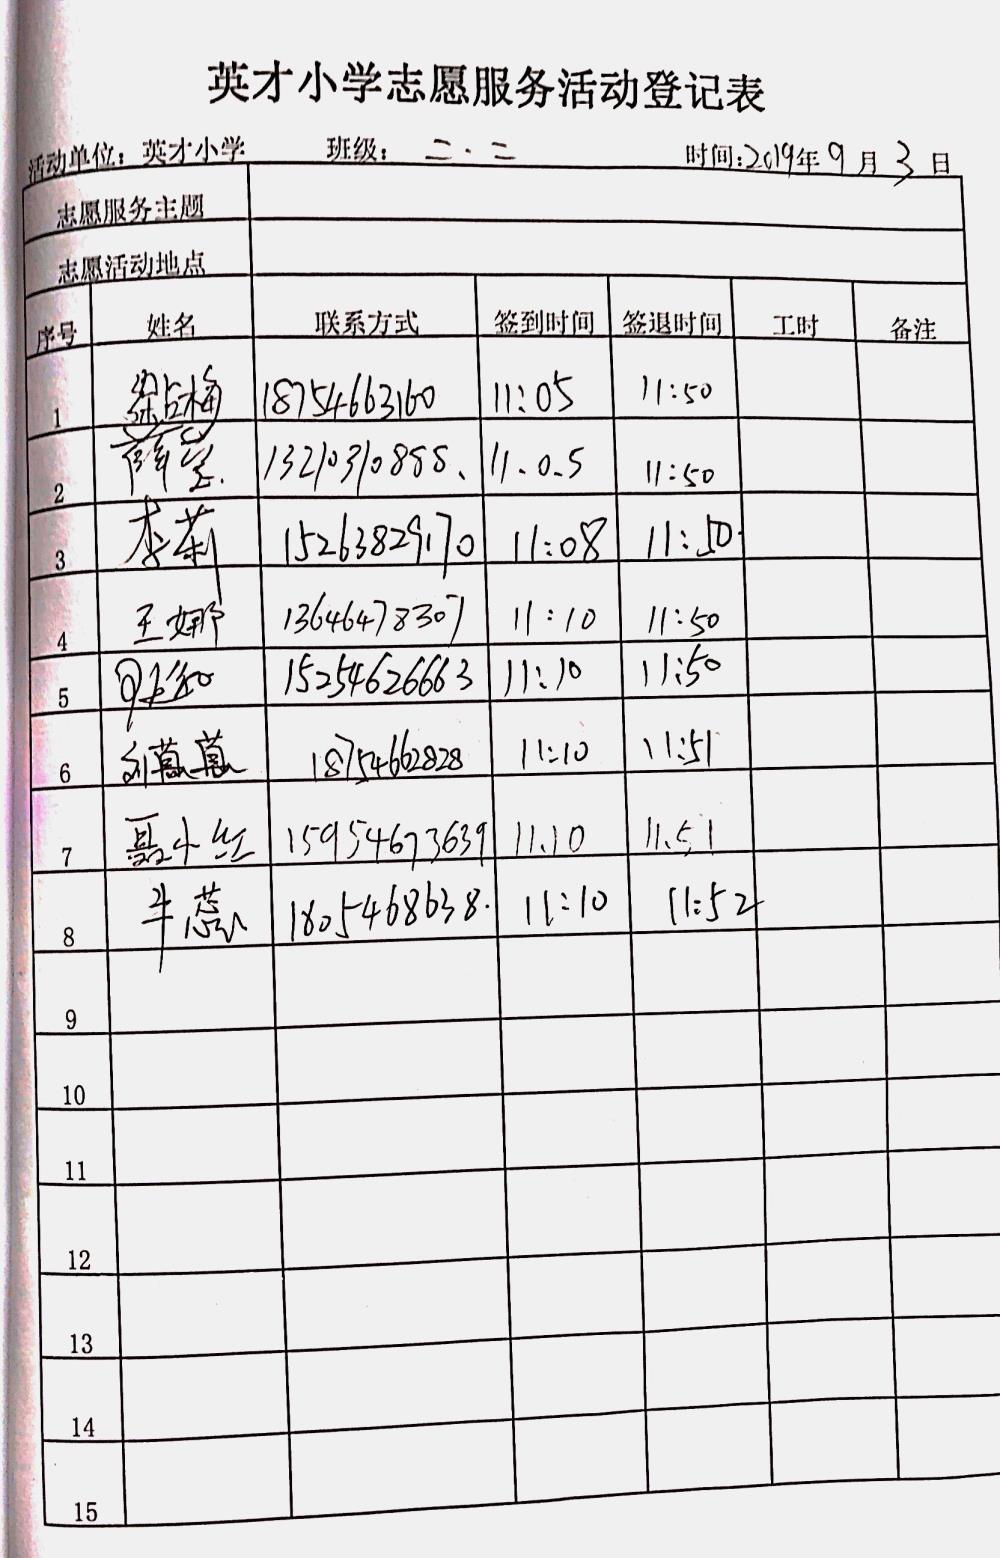 英才小学志愿服务活动登记表
活动单位：英才小学 班级：二．二 时间：2019年9月3日
志愿服务主题
志愿活动地点
序号 姓名 联系方式 签到时间 签退时间 工时 备注
1 梁占梅 18754663160 11:05 11:50
2 薛莹. 13210310888. 11.0.5 11:50
3 李莉 15263829170 11:08 11:50.
4 王娜 13646478307 11:10 11:50
5 15254626663 11:10 11:50
6 刘蕙蕙 18754662828 11:10 11:51
7 聂小红 15954673639 11.10 11.51
8 牛蕊 1805468638. 11:10 11:52
9
10
11
12
13
14
15